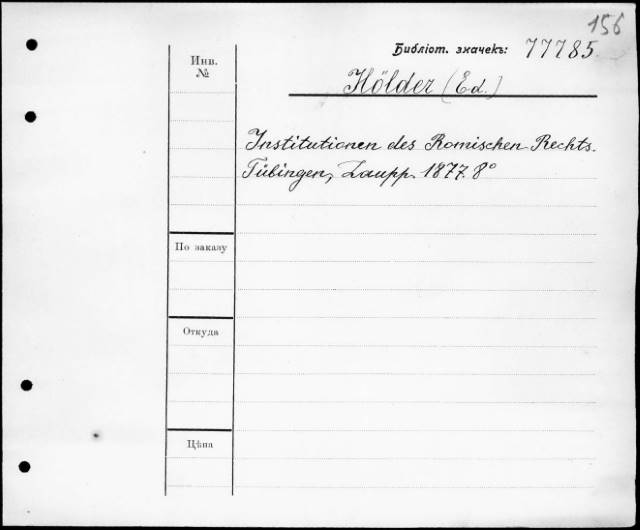 156
Библіот. значекъ: 77785.
Инв.
№
Hölder (Ed.)
Institutionen des Romischen Rechts.
Tübingen, Laupp. 1877. 8°
По заказу
Откуда
Цѣна